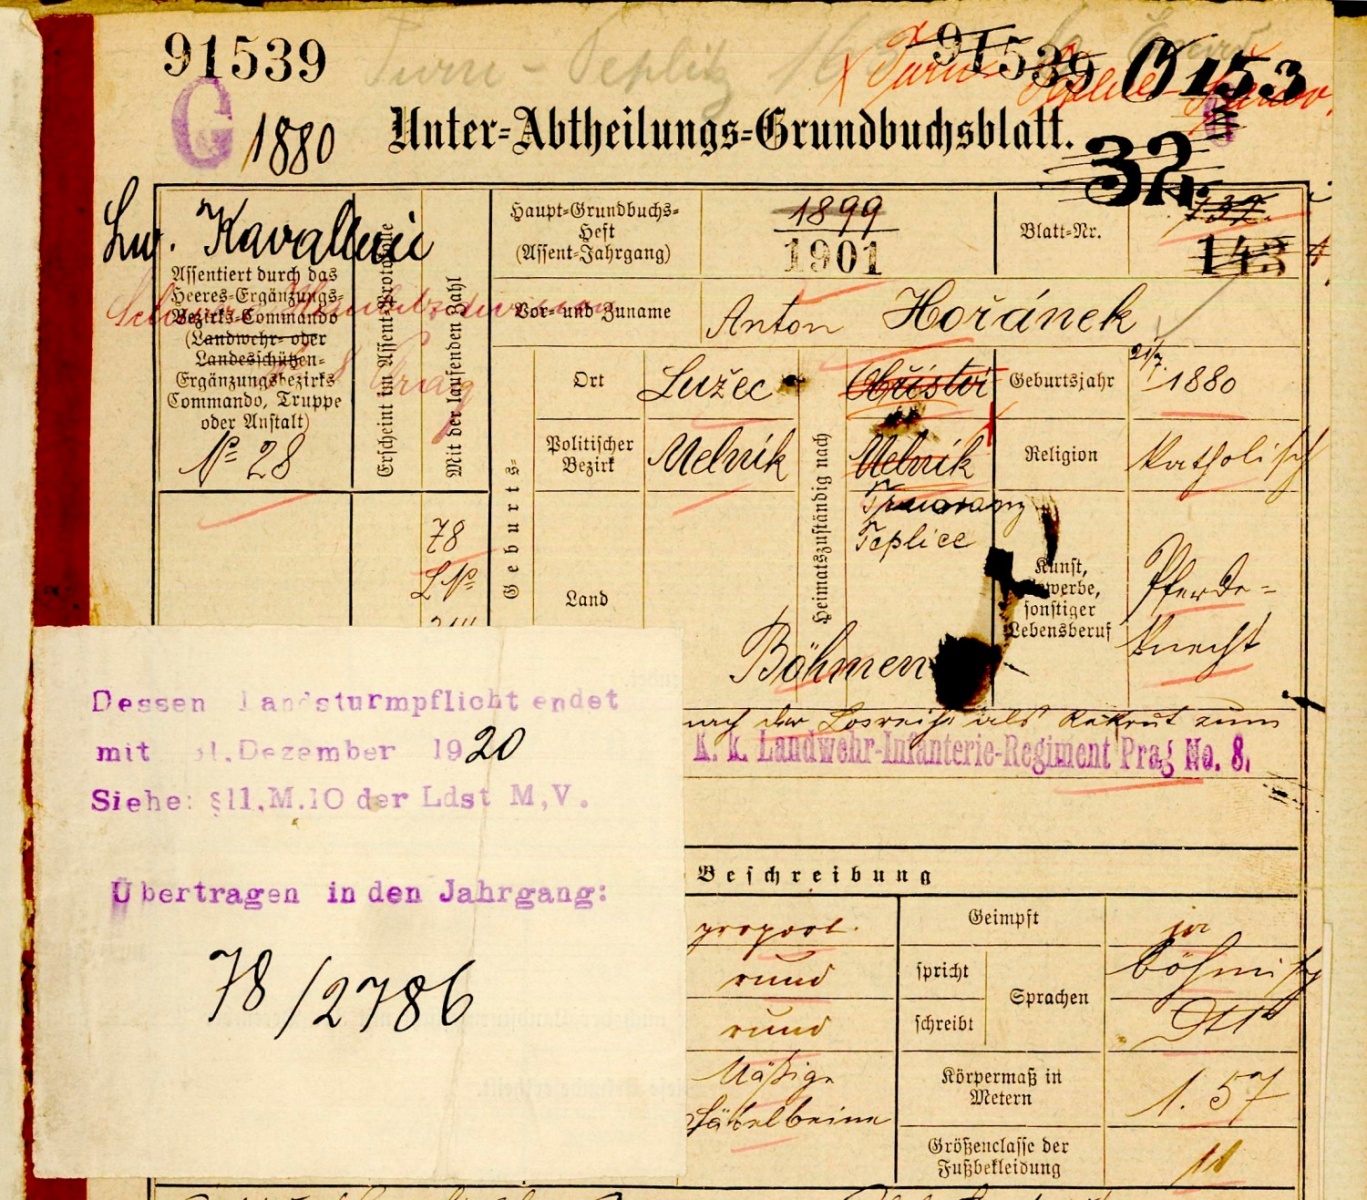 91539
91539
153
G
1880
Unter-Abtheilungs-Grundbuchsblatt.
32
Lw. Kavallerie
Assentiert durch das
Heeres-Ergänzungs-
Bezirks-Commando
(Landwehr- oder
Landesschützen-
Ergänzungsbezirks
Commando, Truppe
oder Anstalt)
No 28
Erscheint im Assent-Protokolle
Mit der laufenden Zahl
78
Haupt-Grundbuchs-
Heft
(Assent-Jahrgang)
1899
1901
Blatt-Nr.
143
Vor- und Zuname
Anton Hořánek
Geburts-
Ort
Lužec
Politischer
Bezirk
Melnik
Land
Böhmen
Heimatszuständig nach
Obříství
Melnik
Teplice
Geburtsjahr
1880
Religion
Katholisch
Kunst,
Gewerbe,
sonstiger
Lebensberuf
Pferde-
knecht
nach der Losreihe als Rekrut zum
K. k. Landwehr-Infanterie-Regiment Prag No. 8.
Dessen Landsturmpflicht endet
mit 31. Dezember 1920
Siehe: §11, M.10 der Ldst M,V.
Übertragen in den Jahrgang:
78/2786
Beschreibung
proport.
rund
rund
Mäßige
Säbelbeine
Geimpft
ja
spricht
schreibt
Sprachen
böhmisch
Körpermaß in
Metern
1.57
Größenclasse der
Fußbekleidung
11